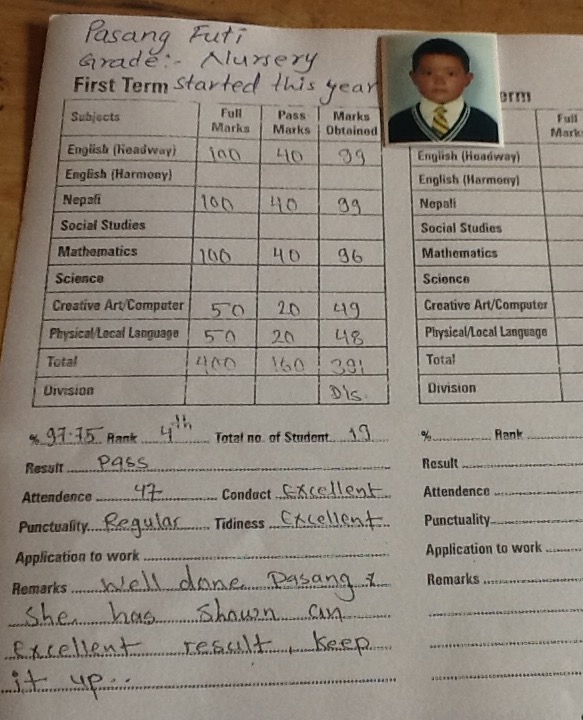 Pasang Futi
Grade:- Nursery
First Term Started this year
Subjects Full Marks Pass Marks Marks Obtained
English (Headway) 100 40 99
English (Harmony)
Nepali 100 40 99
Social Studies
Mathematics 100 40 96
Science
Creative Art/Computer 50 20 49
Physical/Local Language 50 20 48
Total 400 160 391
Division Dis.
% 97.75 Rank 4th Total no. of Student 19
Result Pass
Attendence 47 Conduct Excellent
Punctuality Regular Tidiness Excellent
Application to work
Remarks Well done Pasang
She has shown an
excellent result, keep
it up..
erm
Full
Mark
English (Headway)
English (Harmony)
Nepali
Social Studies
Mathematics
Science
Creative Art/Computer
Physical/Local Language
Total
Division
% Rank
Result
Attendence
Punctuality
Application to work
Remarks